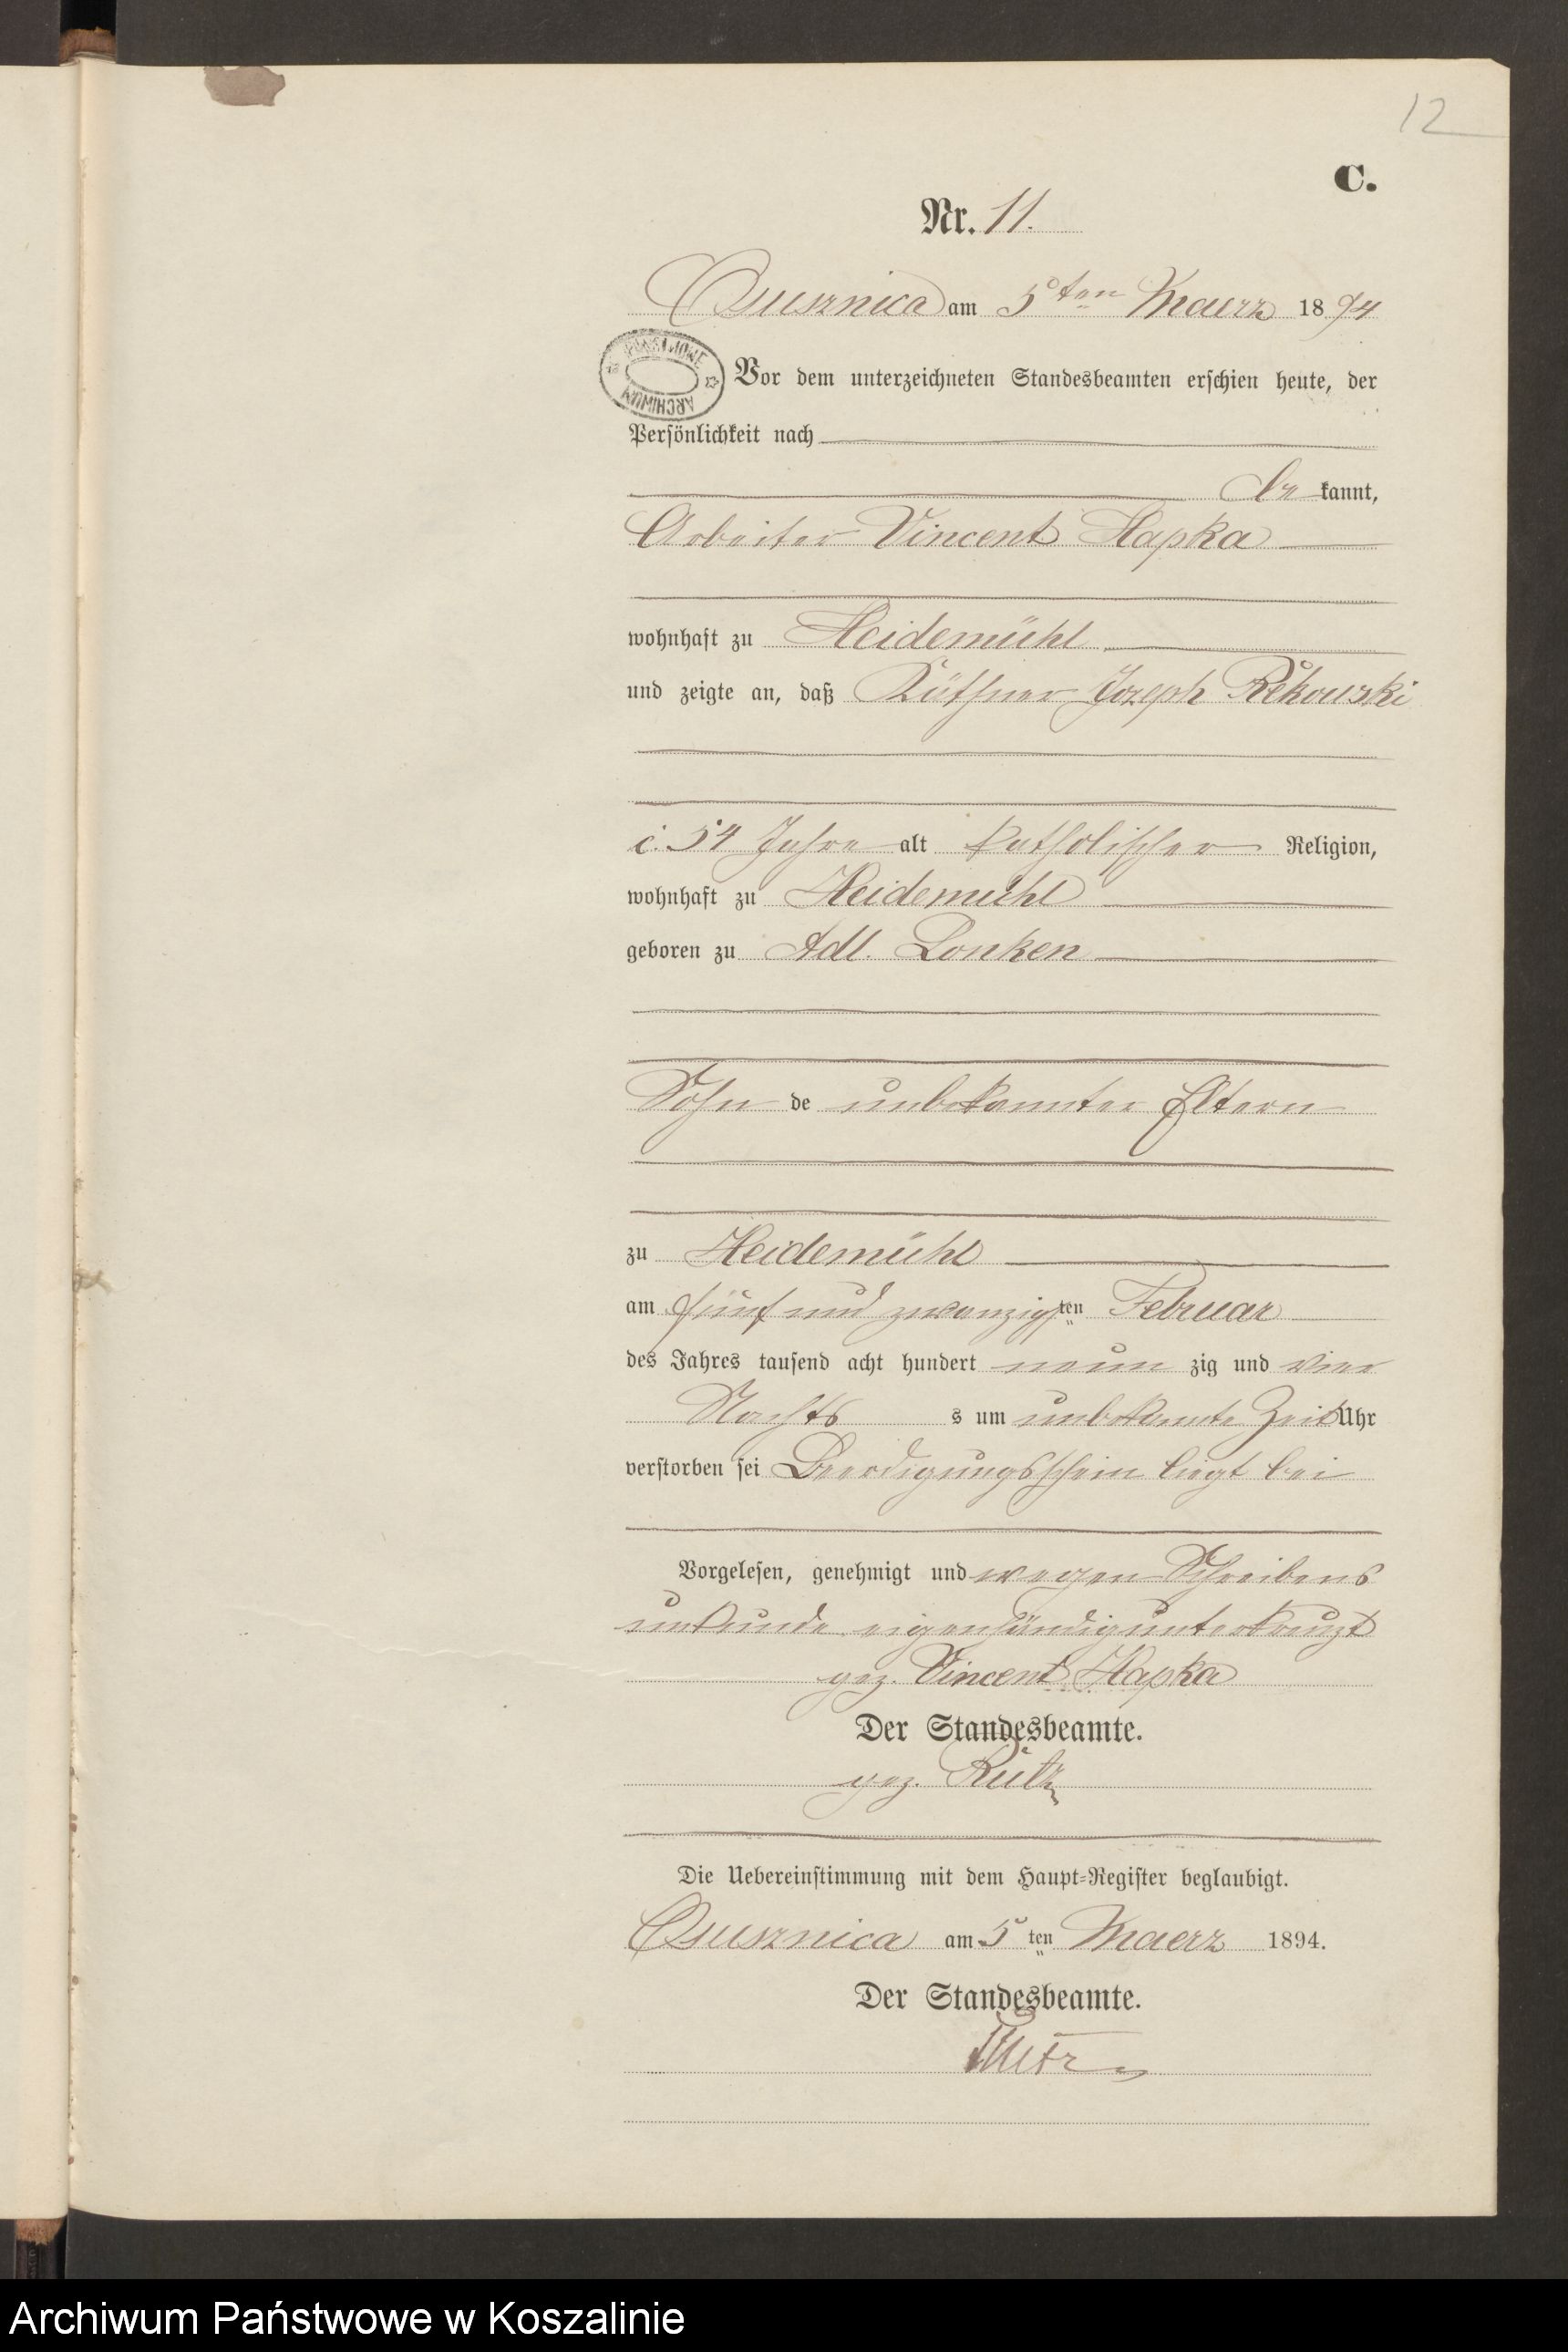 12
C.
Nr. 11.
Ossusznica am 5ten Maerz 1894
PAŃSTWOWE ARCHIWUM
Vor dem unterzeichneten Standesbeamten erschien heute, der
Persönlichkeit nach
be kannt,
Arbeiter Vincent Hapka
wohnhaft zu Heidemühl
und zeigte an, daß Käthner Joseph Rekowski
c. 54 Jahre alt katholischer Religion,
wohnhaft zu Heidemühl
geboren zu Adl. Lonken
Sohn de unbekannter Eltern
zu Heidemühl
am fünf und zwanzigsten Februar
des Jahres tausend acht hundert neun zig und vier
Nachts s um unbekannte Zeit Uhr
verstorben sei Beerdigungsschein liegt bei
Vorgelesen, genehmigt und wegen Schreibens
unkunde eigenhändig unterkreuzt
gez. Vincent Hapka
Der Standesbeamte.
gez. Rütz
Die Uebereinstimmung mit dem Haupt-Register beglaubigt.
Ossusznica am 5 ten Maerz 1894.
Der Standesbeamte.
Archiwum Państwowe w Koszalinie